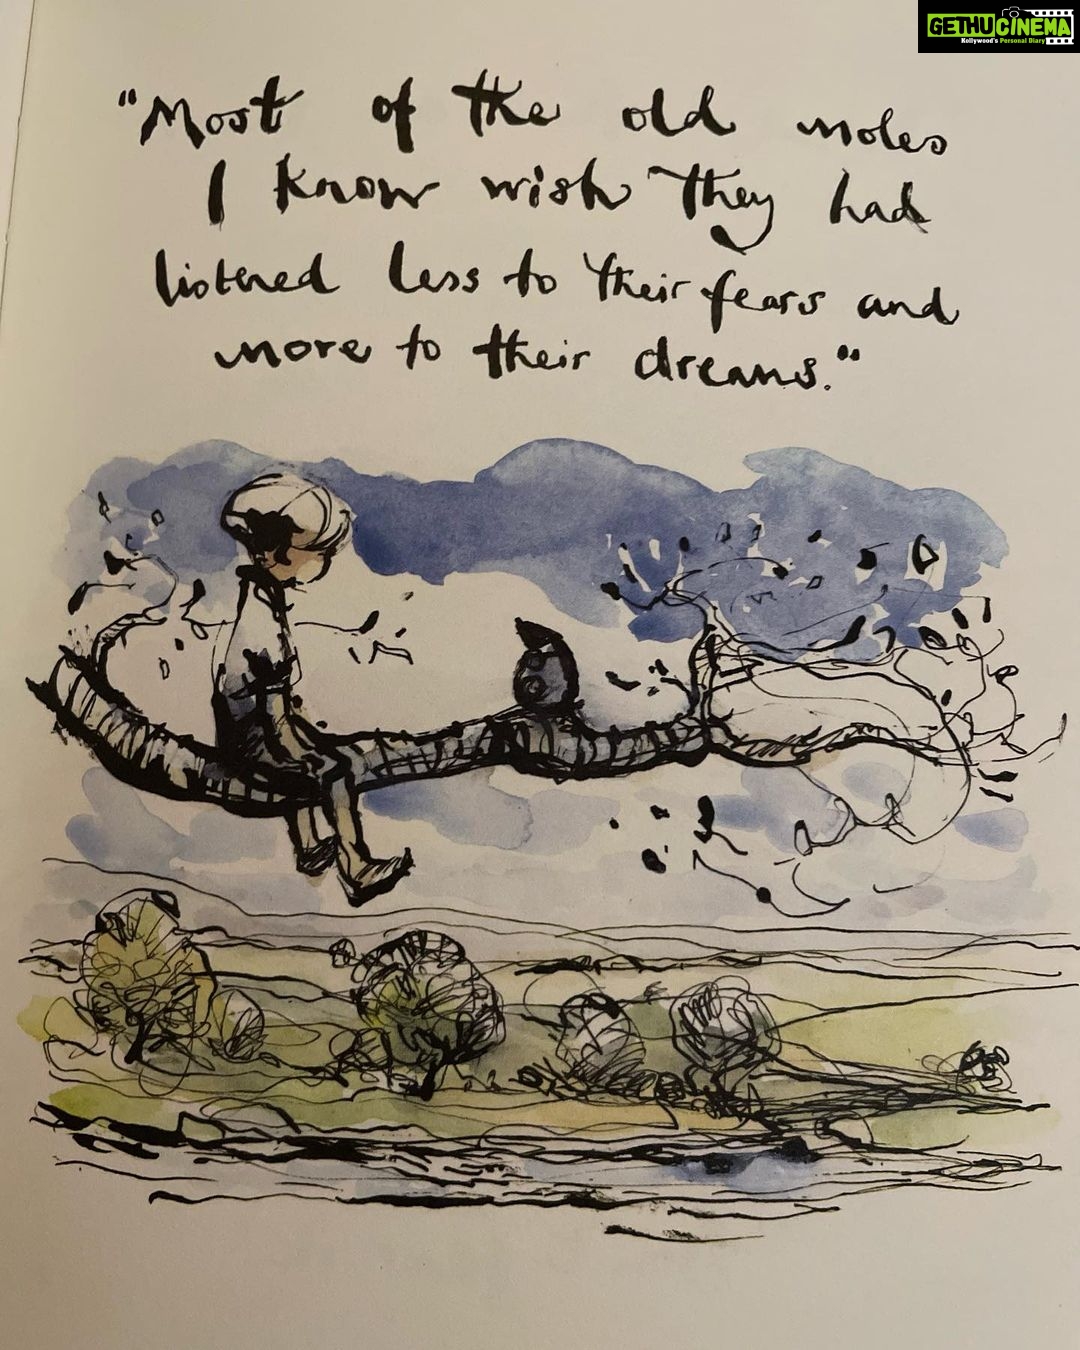 GETHUCINEMA
Kollywood's Personal Diary
"Most of the old moles
I know wish they had
listened less to their fears and
more to their dreams."